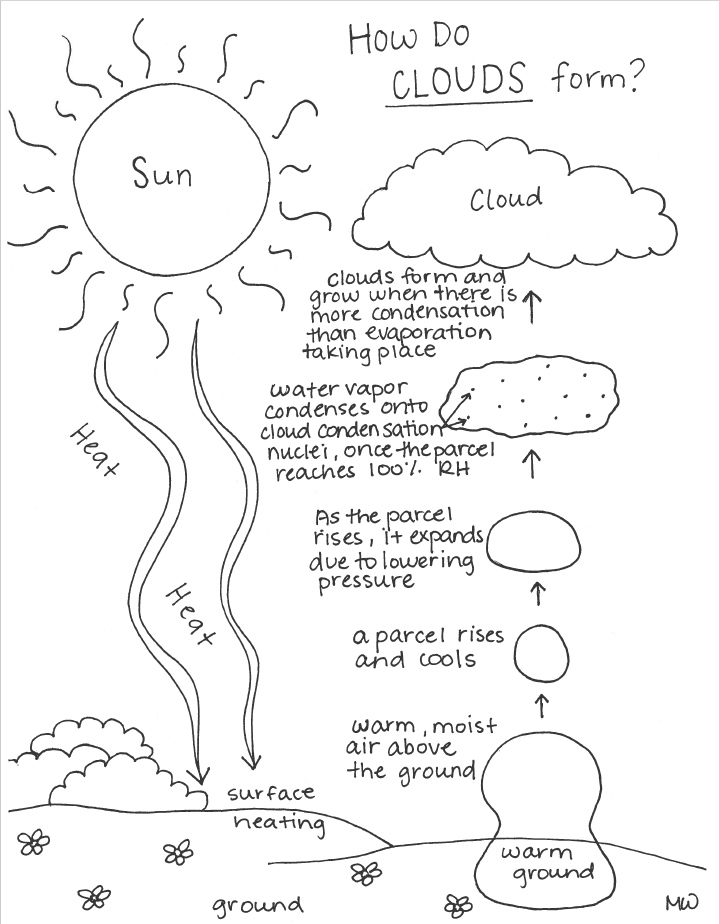 How Do
CLOUDS form?
Sun
Cloud
clouds form and
grow when there is
more condensation
than evaporation
taking place
water vapor
condenses onto
cloud condensation
nuclei, once the parcel
reaches 100% RH
Heat
As the parcel
rises, it expands
due to lowering
pressure
Heat
a parcel rises
and cools
warm, moist
air above
the ground
surface
heating
warm
ground
ground
MW